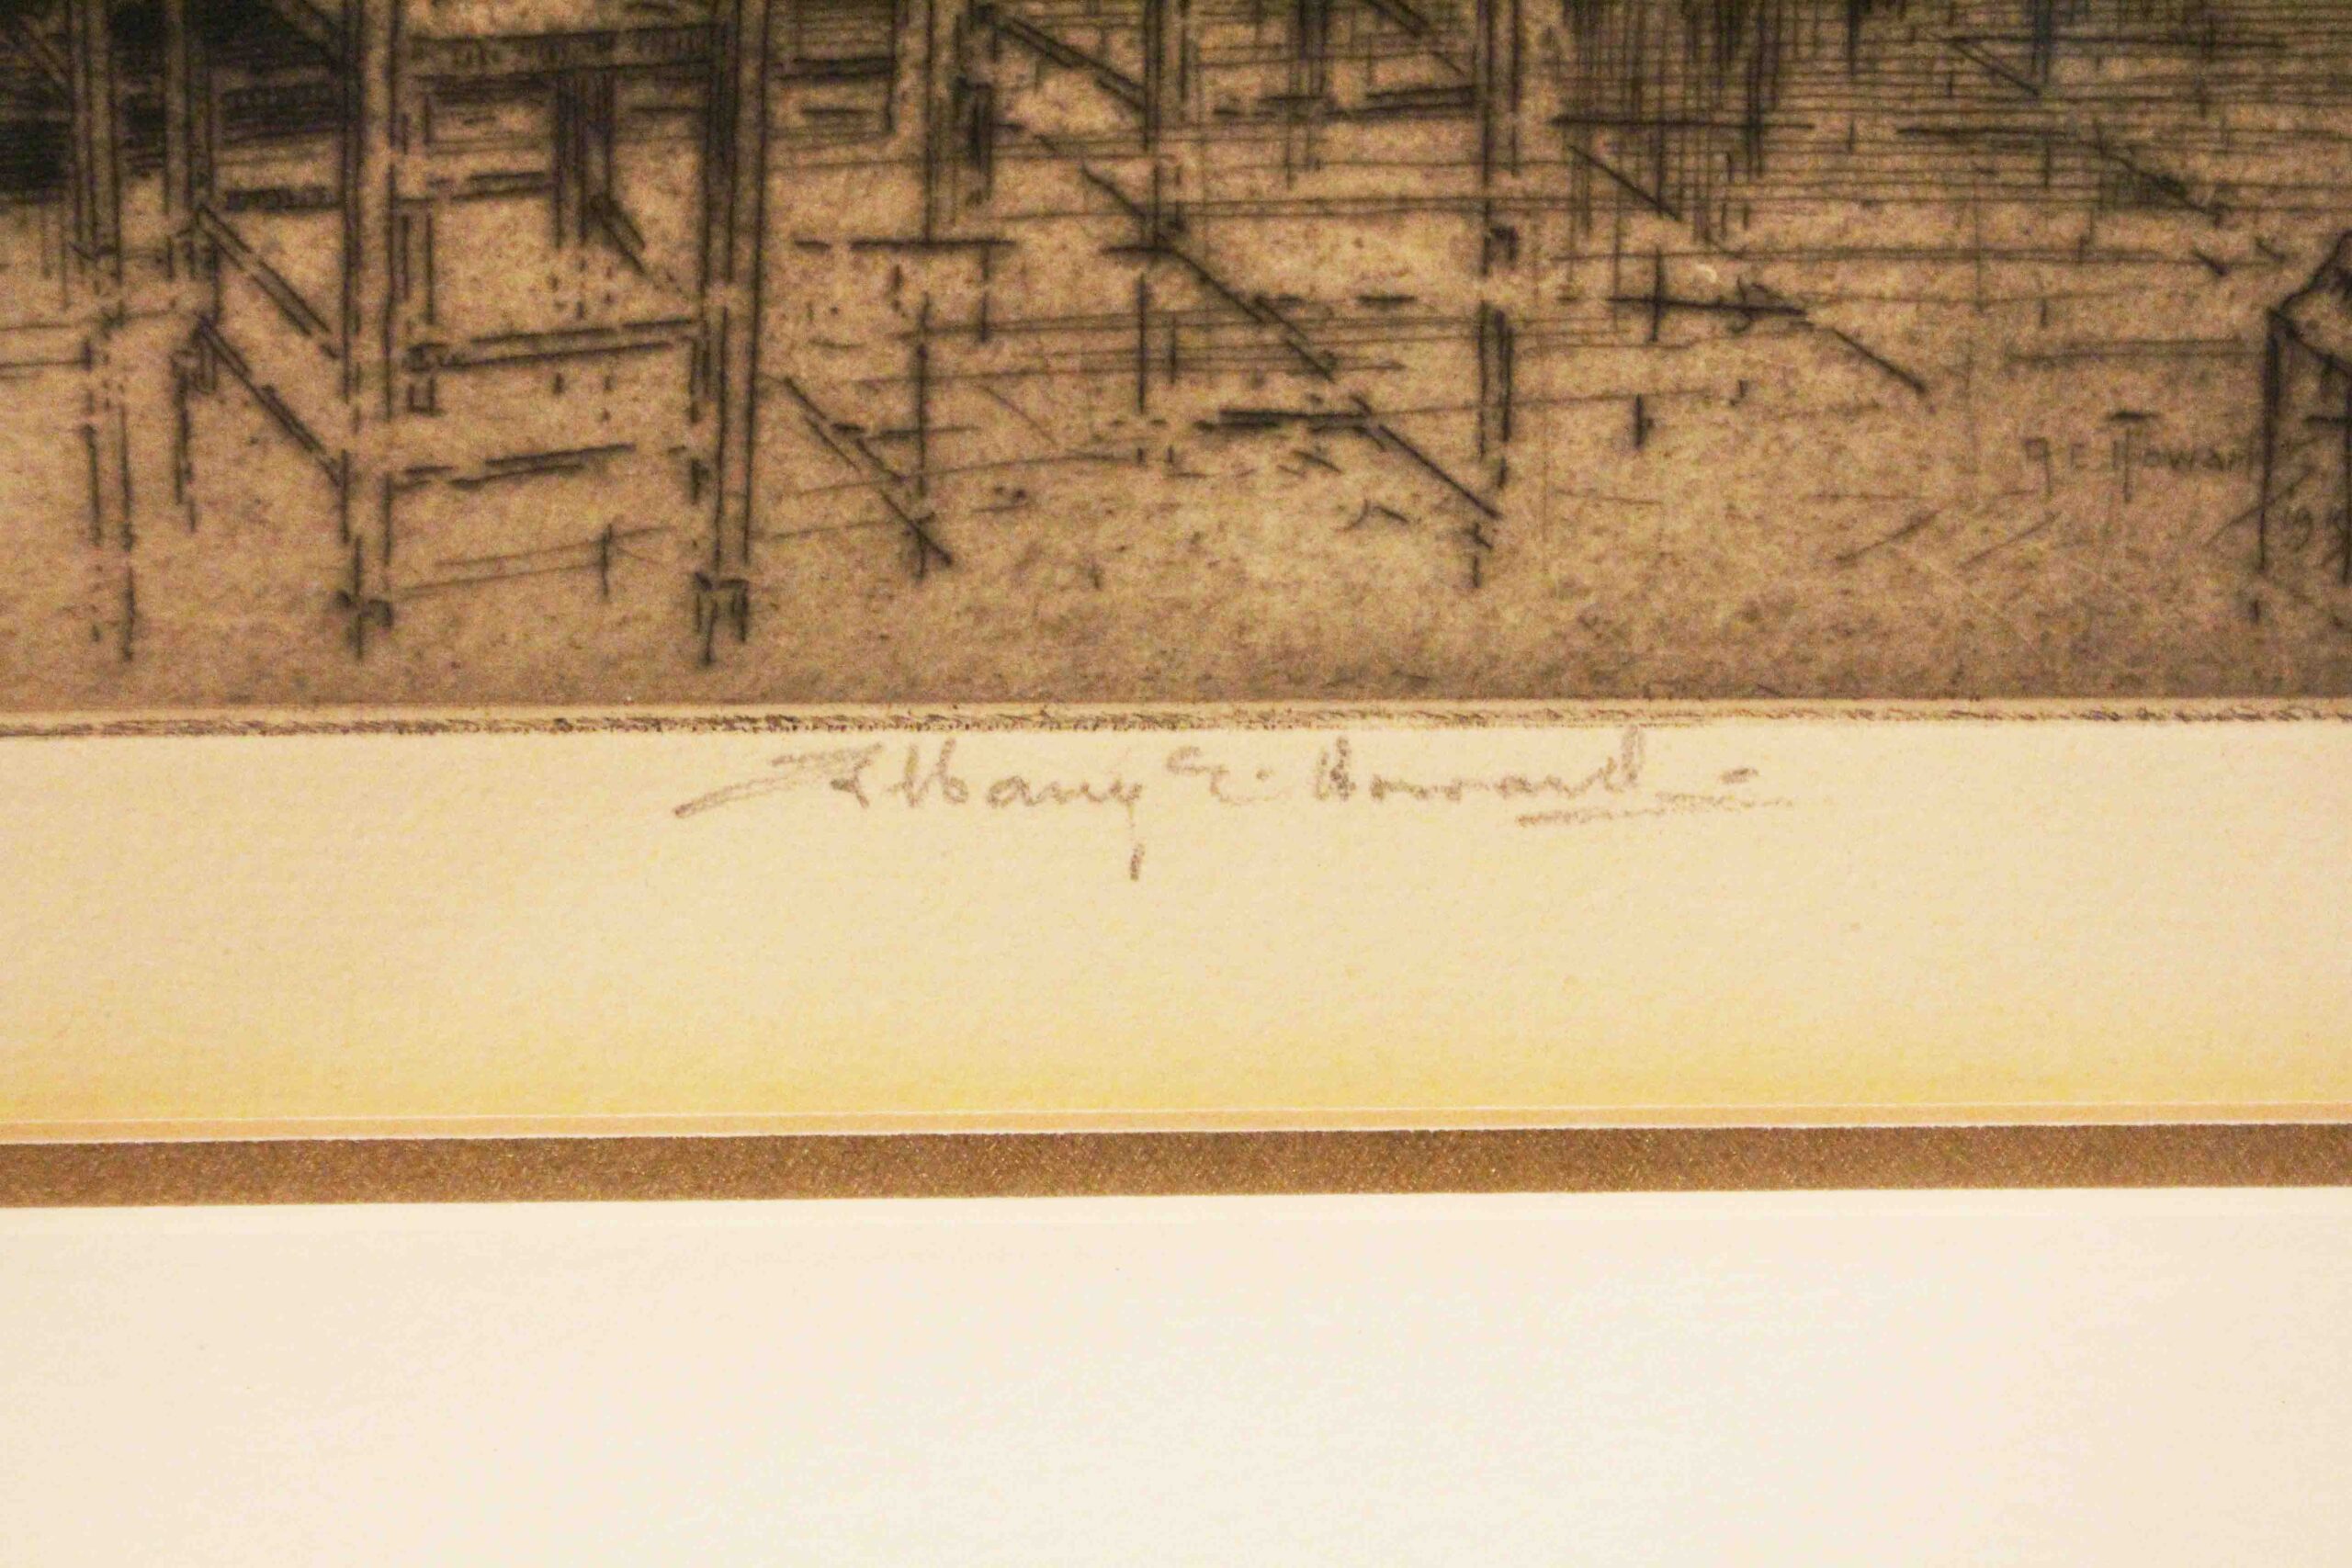 A E Howard
Albany E. Howard